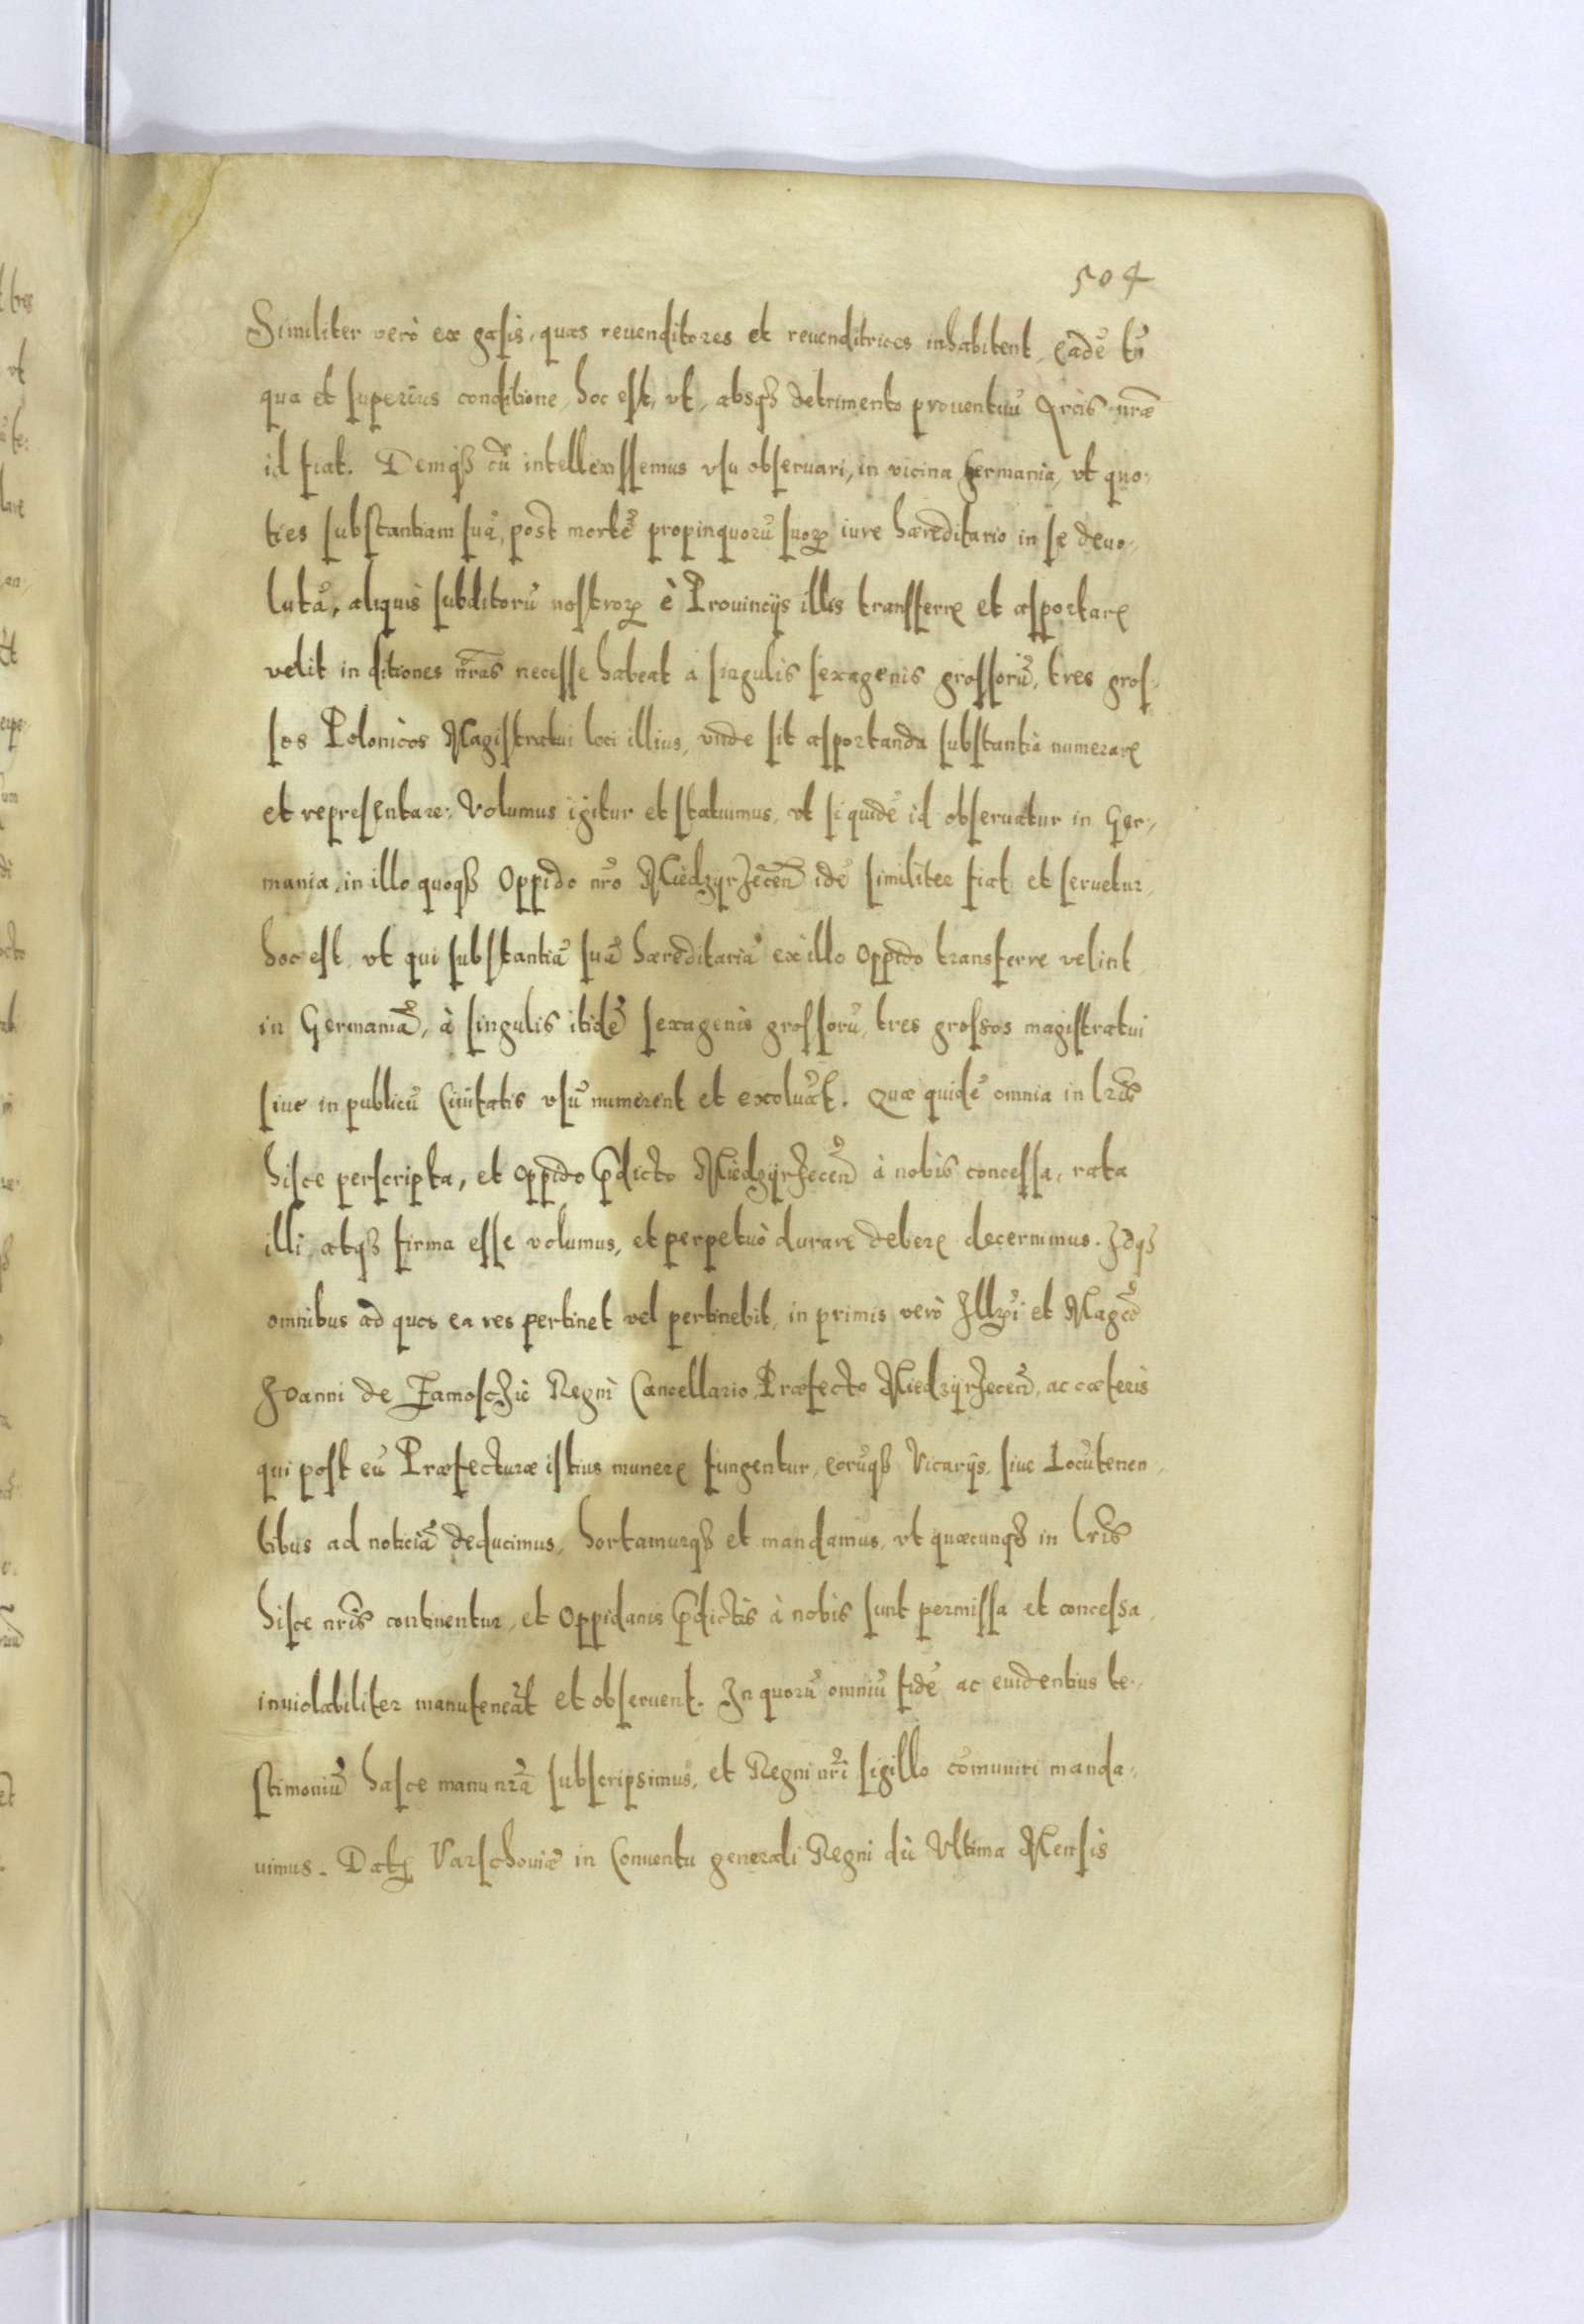 504
Similiter verò ex gasis, quas revenditores et revenditrices inhabitent, eadē tñ
qua et superius conditione, hoc est, vt, absqȝ detrimento prouentuū Arcis nr̃æ
id fiat. Deniqȝ cū intellexissemus vsu obseruari, in vicina Germania, vt quo-
ties substantiam suā, post mortē propinquorū suoꝝ iure hæreditario in se deuo-
lutā, aliquis subditorū nostroꝝ è Prouincijs illis transferre et asportare
velit in ditiones nr̃as necesse habeat à singulis sexagenis grossorū, tres gros-
sos Polonicos Magistratui loci illius, vnde sit asportanda substantia numerare
et representare: Volumus igitur et statuimus, vt siquidē id obseruatur in Ger-
mania, in illo quoqȝ Oppido nr̃o Miedzyrzeceñ idē similiter fiat et seruetur,
hoc est, vt qui substantiā suā hæreditariā ex illo Oppido transferre velint
in Germaniā, à singulis itidē sexagenis grossorū, tres grossos magistratui
siue in publicū Ciuitatis vsū numerent et exoluāt. Quæ quidē omnia in lr̃is
hisce perscripta, et Oppido p̃dicto Miedzyrzeceñ à nobis concessa, rata
illi, atqȝ firma esse volumus, et perpetuò durare debere decernimus. Idqȝ
omnibus ad quos ea res pertinet vel pertinebit, in primis verò Illr̃i et Magc̃o
Joanni de Zamosczie Regni Cancellario, Præfecto Miedzyrzeceñ, ac cæteris
qui post eū Præfecturæ istius munere fungentur, eorūqȝ Vicarijs, siue Locūtenen-
tibus ad noticiā deducimus, hortamurqȝ et mandamus, vt quæcunqȝ in lr̃is
hisce nr̃is continentur, et Oppidanis p̃dictis à nobis sunt permissa et concessa,
inuiolabiliter manuteneāt et obseruent. In quorū omniū fidē ac euidentius te-
stimoniū hasce manu nr̃a subscripsimus, et Regni nr̃i sigillo cōmuniri manda-
uimus. Datꝭ Varschouiæ in Conuentu generali Regni dū Vltima Mensis